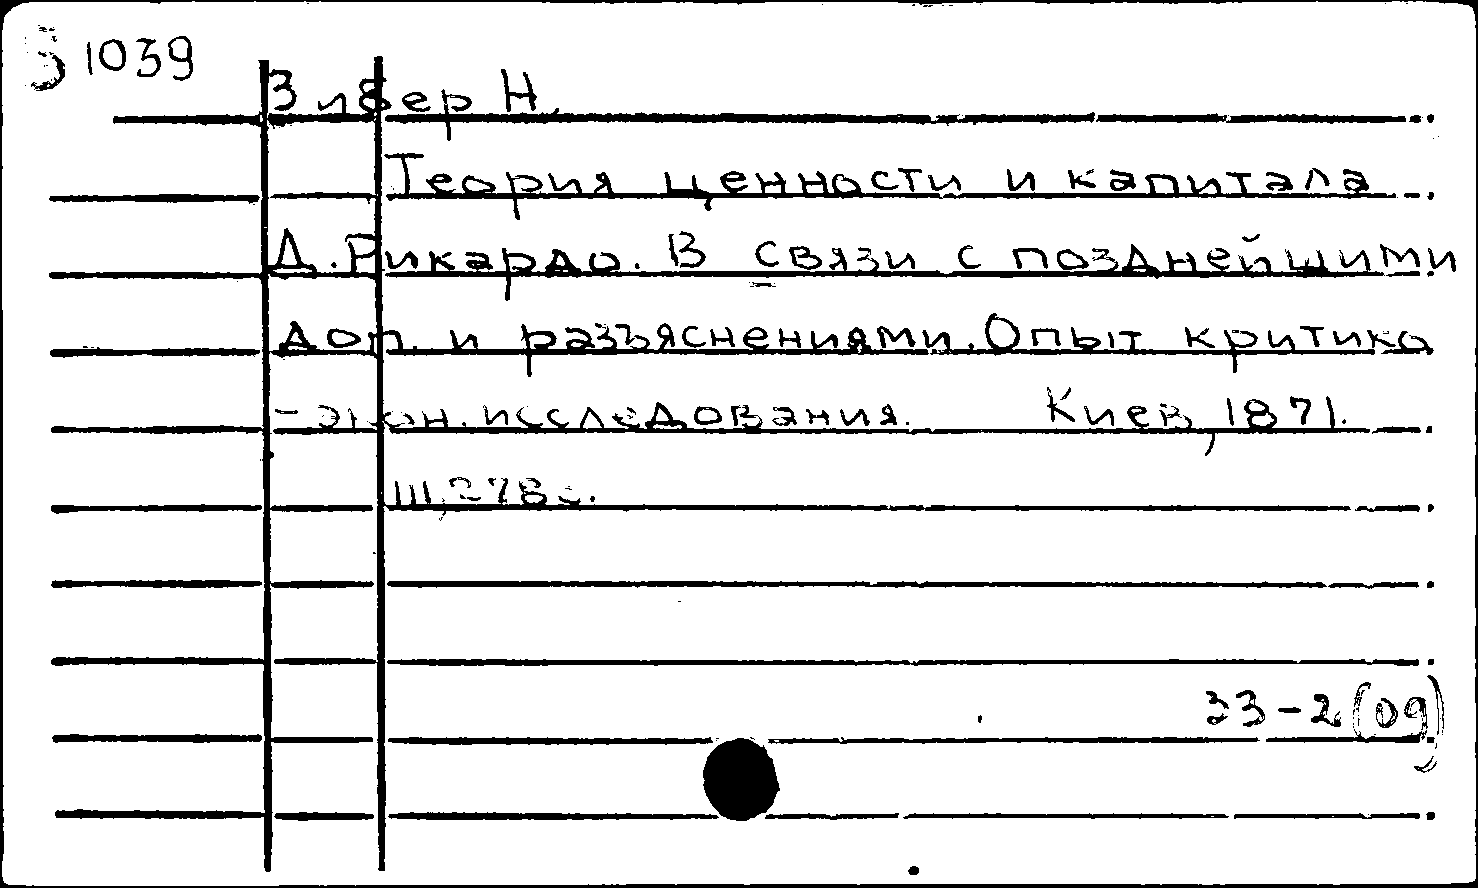 З 1039
Зибер Н.
Теория ценности и капитала
Д. Рикардо. В связи с позднейшими
доп. и разъяснениями. Опыт критико
-экон. исследования. Киев, 1871.
III, 278 с.
33-2(09)